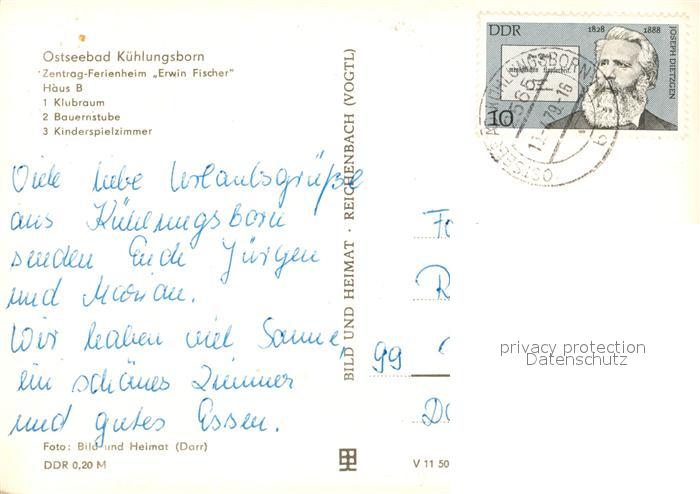 Ostseebad Kühlungsborn
Zentrag-Ferienheim „Erwin Fischer"
Haus B
1 Klubraum
2 Bauernstube
3 Kinderspielzimmer
Viele liebe Urlaubsgrüße
aus Kühlungsborn
senden Euch Jürgen
und Marian.
Wir haben viel Sonne,
ein schönes Zimmer
und gutes Essen.
Foto: Bild und Heimat (Darr)
DDR 0,20 M
BILD UND HEIMAT · REICHENBACH (VOGTL)
V 11 50
DDR
1828 1888
JOSEPH DIETZGEN
10
KÜHLUNGSBORN
2565
OSTSEEBAD
b
99
privacy protection
Datenschutz